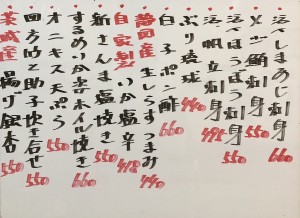 活〆しまあじ刺身 660
メジ鮪刺身 550
活〆ほうぼう刺身 550
活帆立刺身 495
ぶり琉球 440
白子ポン酢 660
静岡産生しらすつまみ 440
自家製いか塩辛 418
新さんま塩焼き 550
するめいか肝ホイル焼き 660
オニキス天ぷら 550
四方竹と助子炊き合せ 550
茨城産揚げ銀杏 550